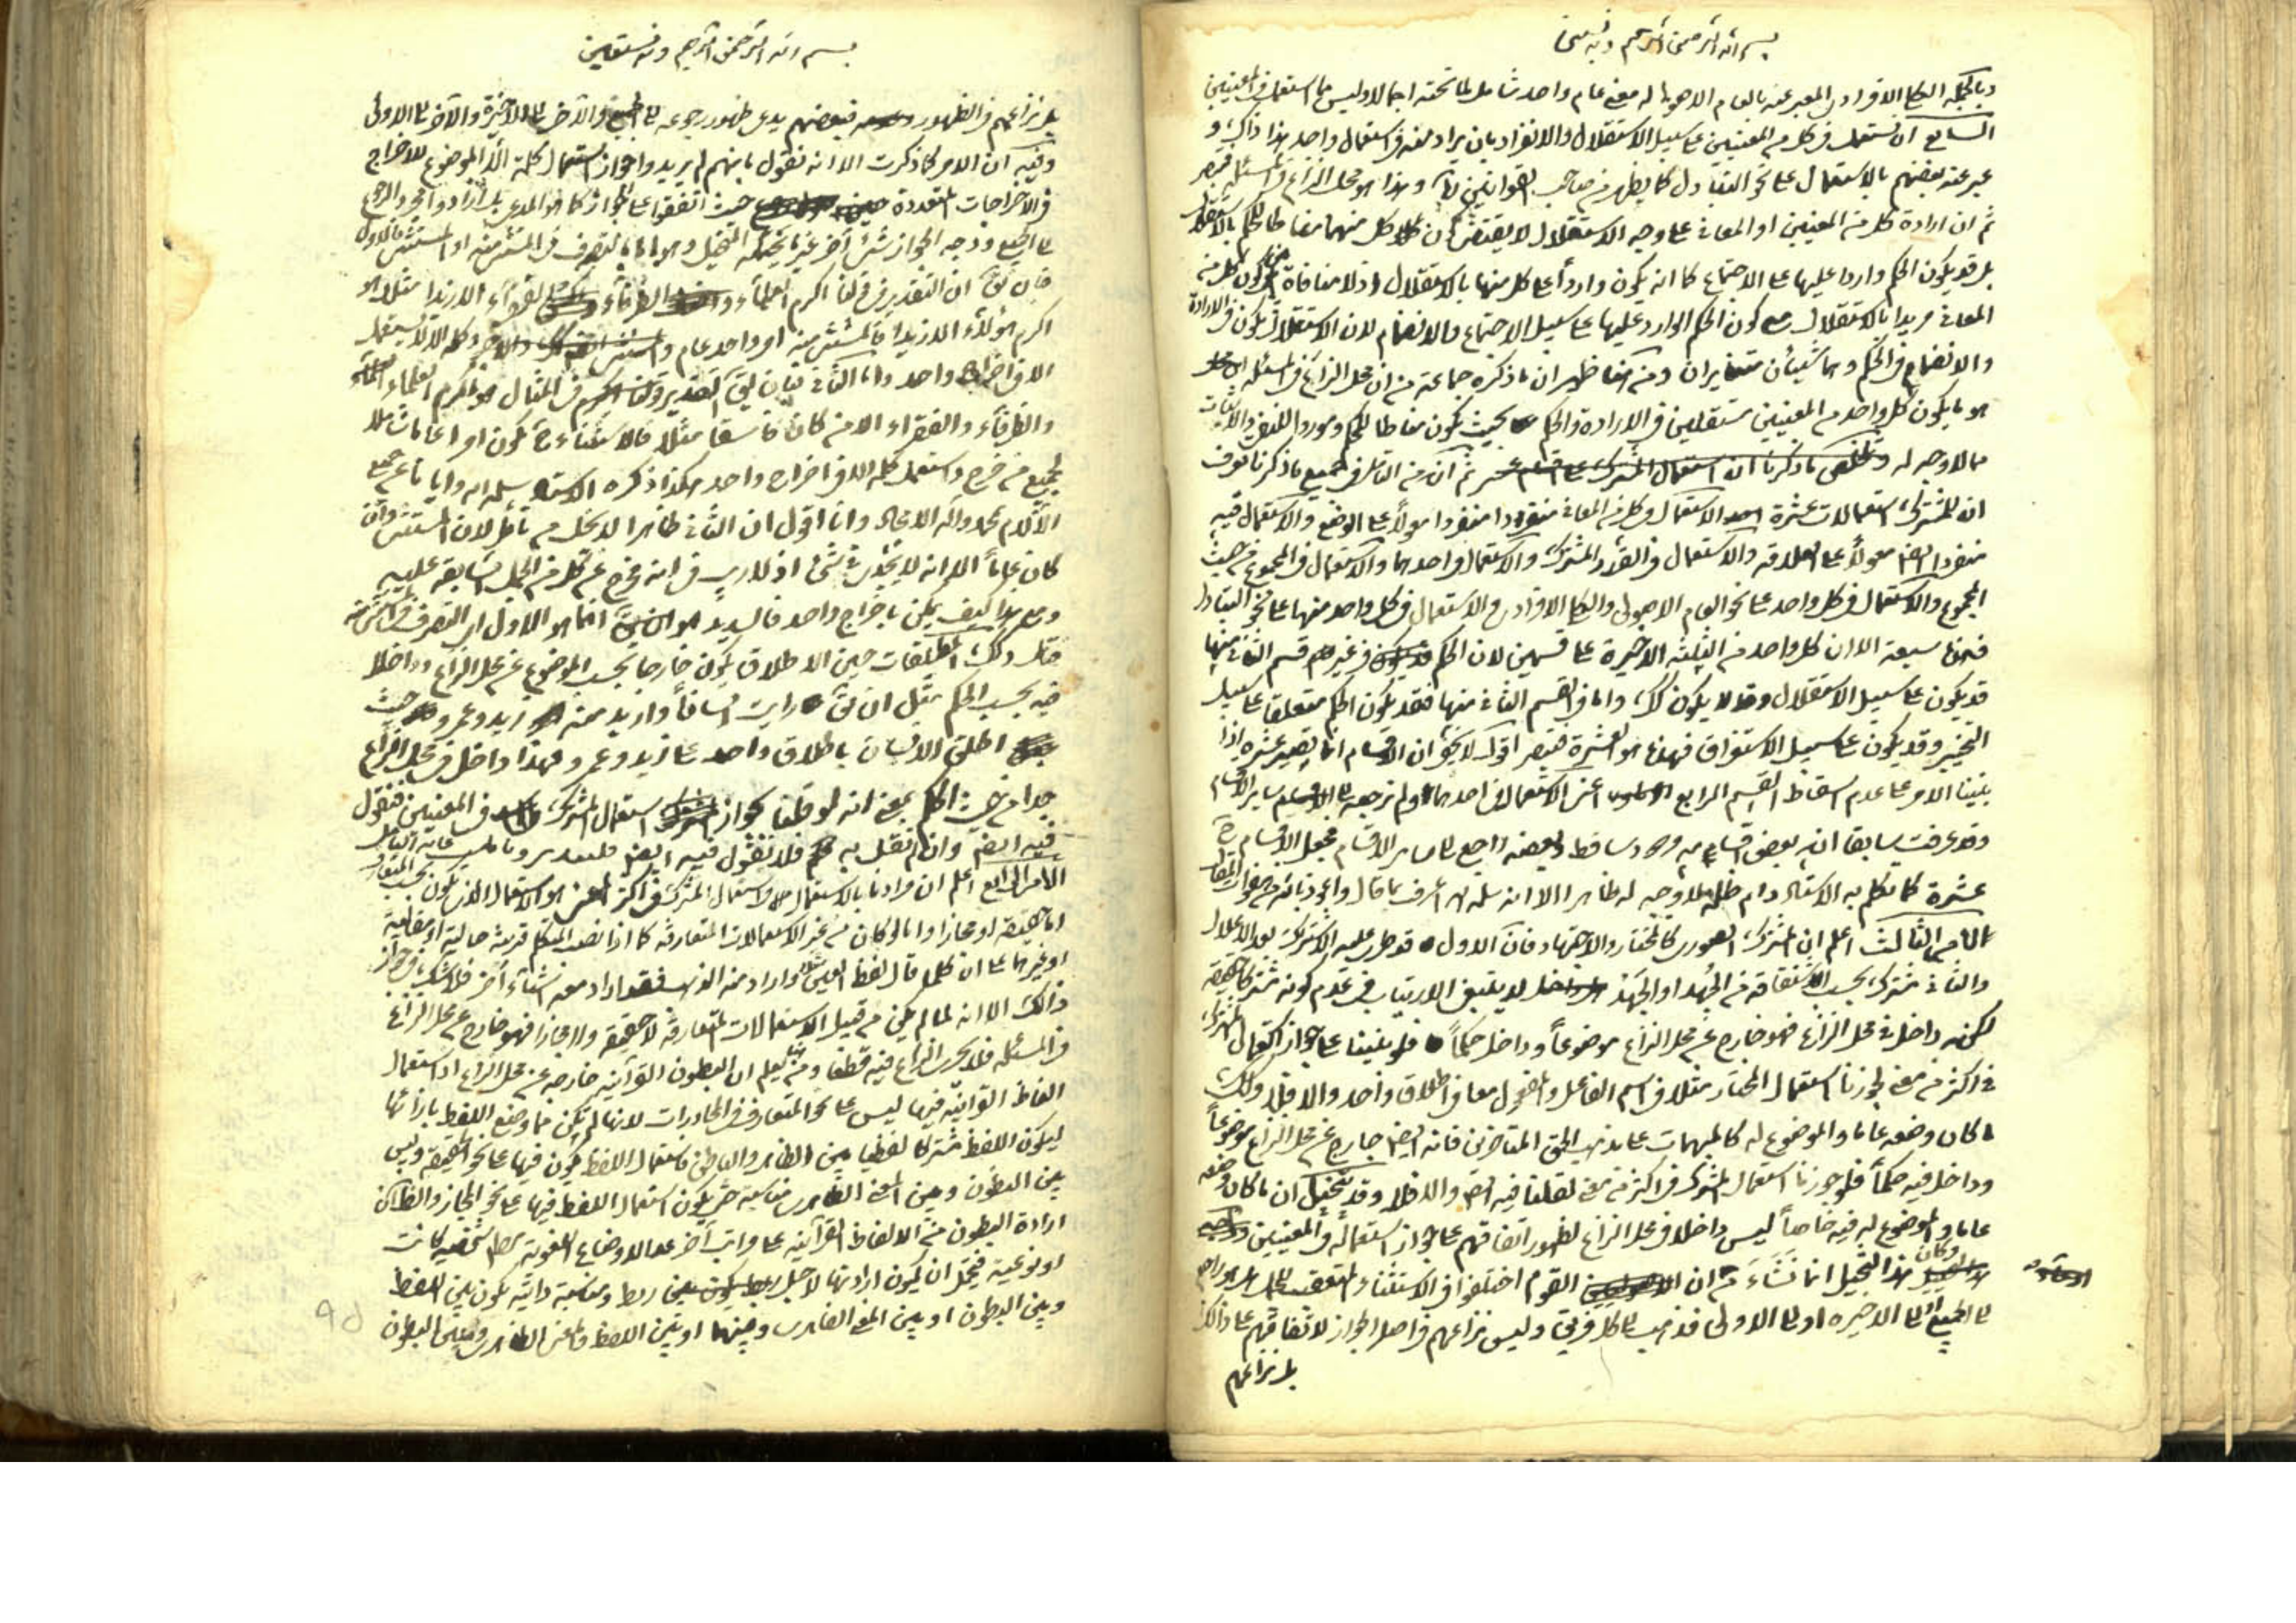 بسم الله الرحمن الرحيم وبه نستعين
وبالجملة الكل الافرادى المعبر عنه بالعام الاصولى له معنى عام واحد شامل لما تحته اجمالا وليس مما استعمل فى المعنيين
السابع ان يستعمل فى كل من المعنيين على سبيل الاستقلال والانفراد بان يراد منه فى استعمال واحد هذا وذاك و
عبر عنه بعضهم بالاستعمال على نحو التبادل كما يظهر من صاحب القوانين وهذا هو محل النزاع فى المسئلة
ثم ان ارادة كل من المعنيين او المعانى على وجه الاستقلال لا يقتضى كون كل منهما مناطا للحكم
بل قد يكون الحكم واردا عليها على الاجتماع كما انه يكون واردا على كل منها بالاستقلال اذ لا منافاة بين كون كل من
المعانى مريدا بالاستقلال مع كون الحكم الوارد عليها على سبيل الاجتماع والانضمام لان الاستقلال يكون فى الارادة
والانضمام فى الحكم وهما شيئان متغايران ومن هنا ظهر ان ما ذكره جماعة من ان محل النزاع فى المسئلة
هو ما يكون كل واحد من المعنيين مستقلين فى الارادة والحكم بحيث يكون مناطا للحكم وموردا للنفى والاثبات
مما لا وجه له ثم ان من التامل فى جميع ما ذكرنا تعرف
ان للمشترك استعمالات عشرة الاستعمال فى كل من المعانى منفردا منفردا معولا على الوضع والاستعمال فيه
منفردا ايضا معولا على العلاقة والاستعمال فى القدر المشترك والاستعمال فى احدهما والاستعمال فى المجموع من حيث
المجموع والاستعمال فى كل واحد على نحو العام الاصولى والكل الافرادى والاستعمال فى كل واحد منها على نحو التبادل
فهذه سبعة الا ان كل واحد من الثلثة الاخيرة على قسمين لان الحكم فى غير القسم الثانى منها
قد يكون على سبيل الاستقلال وقد لا يكون كذلك واما فى القسم الثانى منها فقد يكون الحكم متعلقا على سبيل
التخيير وقد يكون على سبيل الاستغراق فهذه هو العشرة اقول لا يخفى ان الاقسام انما يصير عشرة اذا
بنينا الامر على عدم اسقاط القسم الرابع اعنى الاستعمال فى احدهما ولم نرجعه الى ساير الاقسام
وقد عرفت سابقا ان بعض اقسامه ساقط وبعضه راجع الى ساير الاقسام فجعل الاقسام
عشرة كما تكلم به الاستاد دام ظله لا وجه له ظاهرا الا انه سلمه الله اعرف بما قال
الامر الثالث اعلم ان المشترك الصورى كالمختار والاجتهاد فان الاول قد طرء عليه الاشتراك بعد الاعلال
والثانى مشترك بحسب الاشتقاقة من الجُهد او الجَهد لا ينبغى الارتياب فى عدم كونه مشتركا حقيقة
لكنه داخل فى محل النزاع فهو خارج عن محل النزاع موضوعاً وداخل حكماً فلو بنينا على جواز استعمال المشترك
فى اكثر من معنى لجوزنا استعمال المختار مثلا فى اسم الفاعل والمفعول معا فى اطلاق واحد والا فلا وكذلك
ما كان وضعه عاما والموضوع له كالمبهمات على مذهب المتاخرين فانه ايضا خارج عن محل النزاع موضوعاً
وداخل فيه حكماً فلو جوزنا استعمال المشترك فى اكثر من معنى لقلنا فيه ايضا والا فلا وقد يتخيل ان ما كان وضعه
عاما والموضوع له فيه خاصاً ليس داخلا فى محل النزاع لظهور اتفاقهم على جواز استعماله فى المعنيين
وكان هذا التخيل انما نشاء من ان القوم اختلفوا فى الاستثناء المتعقب للجمل هل هو راجع
الى الجميع او الى الاخيرة او الى الاولى فذهب الى كل فريق وليس نزاعهم فى اصل الجواز لاتفاقهم على ذلك
بل نزاعهم
بسم الله الرحمن الرحيم وبه نستعين
بل نزاعهم فى الظهور فبعضهم يدعى ظهور رجوعه الى الجميع والآخر الى الاخيرة والآخر الى الاولى
وفيه ان الامر كما ذكرت الا انه نقول بانهم لم يريدوا جواز استعمال كلمة الّا الموضوع للاخراج
فى الاخراجات المتعددة حيث اتفقوا على الجواز كما هو المدعى بل ارادوا مجرد الرجوع
الى الجميع ووجه الجواز شئ آخر غير ما يتخيله المتخيل وهو اما بالتصرف فى المستثنى منه او المستثنى
فان يق ان التقدير فى قولنا اكرم العلماء والظرفاء والفقراء الا زيدا مثلا هو
اكرم هؤلاء الا زيدا فالمستثنى منه امر واحد عام وكلمة الا لا يستعمل
الا فى اخراج واحد واما الثانى فبان يق التقدير فى المثال هو اكرم العلماء
والظرفاء والفقراء الا من كان فاسقا مثلا فالاستثناء يكون امرا عاما شاملا
لجميع من خرج واستعمل كلمة الا فى اخراج واحد هكذا ذكره الاستاد سلمه الله وايانا عن جميع
الآلام بمحمد وآله الامجاد وانا اقول ان الثانى ظاهرا لا يخلو من تأمل لان المستثنى وان
كان عاماً الا انه لا يجدى شئ اذ لا ريب فى انه مخرج عن كل من الجمل السابقة عليه
ومع هذا كيف يمكن باخراج واحد فالسديد انما هو الاول اى التصرف فى المستثنى منه
مثل ذلك المطلقات حين الاطلاق يكون خارجا بحسب الموضوع عن محل النزاع وداخلا
فيه بحسب الحكم مثل ان يق رايت انسانا واريد منه زيد وعمرو حيث
اطلق الانسان باطلاق واحد على زيد وعمرو فهذا داخل فى محل النزاع
جدا من حيث الحكم بمعنى انه لو قلنا بجواز استعمال المشترك فى المعنيين فنقول
فيه ايضا وان لم نقل به فلا نقول فيه ايضا
الامر الرابع اعلم ان مرادنا بالاستعمال استعمال المشترك فى اكثر من معنى هو الاستعمال الذى يكون بحسب المتعارف
اما حقيقة او مجازا واما لو كان من غير الاستعمالات المتعارفة كما اذا نصب المتكلم قرينة حالية او مقالية
او غيرها على ان كلما قال لفظ العين مثلا واراد منه الذهب فقد اراد معه اشياء آخر فلا شك فى جواز
ذلك الا انه لما لم يكن من قبيل الاستعمالات المتعارفة لا حقيقة ولا مجازا فهو خارج عن محل النزاع
فى المسئلة فلا يجرى النزاع فيه قطعا ومن هنا يعلم ان البطون القرآنيه خارجة عن محل النزاع اذ استعمال
الفاظ القرآنية فيها ليس على نحو المتعارف فى المحاورات لانها لم تكن مما وضع اللفظ بازائها
ليكون اللفظ مشتركا لفظيا بين الظاهر والباطن فاستعمال اللفظ يكون فيها على نحو الحقيقة وليس
بين البطون وبين المعنى الظاهرى مناسبة حتى يكون استعمال اللفظ فيها على نحو المجاز والظاهر ان
ارادة البطون من الالفاظ القرآنية على مراتب آخر عدا الاوضاع اللغوية شخصية كانت
او نوعية فيحتمل ان يكون ارادتها لاجل ربط ومناسبة ذاتية يكون بين اللفظ
وبين البطون او بين المعنى الظاهرى وبينها او بين اللفظ والمعنى الظاهرى وبين البطون